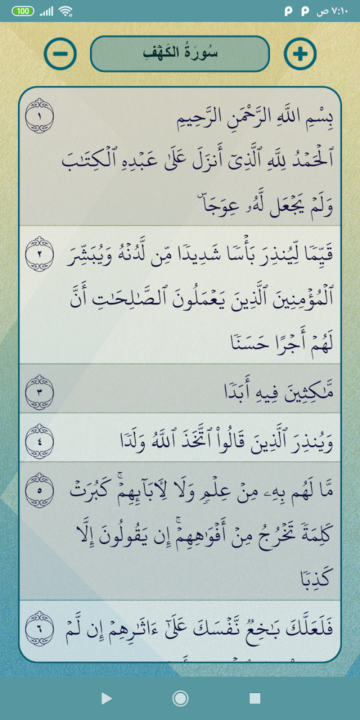 100
٧:١٠ ص
سُورَةُ الكَهۡفِ
بِسۡمِ اللَّهِ الرَّحۡمَٰنِ الرَّحِيمِ ١
ٱلۡحَمۡدُ لِلَّهِ ٱلَّذِيٓ أَنزَلَ عَلَىٰ عَبۡدِهِ ٱلۡكِتَٰبَ
وَلَمۡ يَجۡعَل لَّهُۥ عِوَجَاۜ
قَيِّمٗا لِّيُنذِرَ بَأۡسٗا شَدِيدٗا مِّن لَّدُنۡهُ وَيُبَشِّرَ ٢
ٱلۡمُؤۡمِنِينَ ٱلَّذِينَ يَعۡمَلُونَ ٱلصَّٰلِحَٰتِ أَنَّ
لَهُمۡ أَجۡرًا حَسَنٗا
مَّٰكِثِينَ فِيهِ أَبَدٗا ٣
وَيُنذِرَ ٱلَّذِينَ قَالُواْ ٱتَّخَذَ ٱللَّهُ وَلَدٗا ٤
مَّا لَهُم بِهِۦ مِنۡ عِلۡمٖ وَلَا لِأٓبَآئِهِمۡۚ كَبُرَتۡ ٥
كَلِمَةٗ تَخۡرُجُ مِنۡ أَفۡوَٰهِهِمۡۚ إِن يَقُولُونَ إِلَّا
كَذِبٗا
فَلَعَلَّكَ بَٰخِعٞ نَّفۡسَكَ عَلَىٰٓ ءَاثَٰرِهِمۡ إِن لَّمۡ ٦